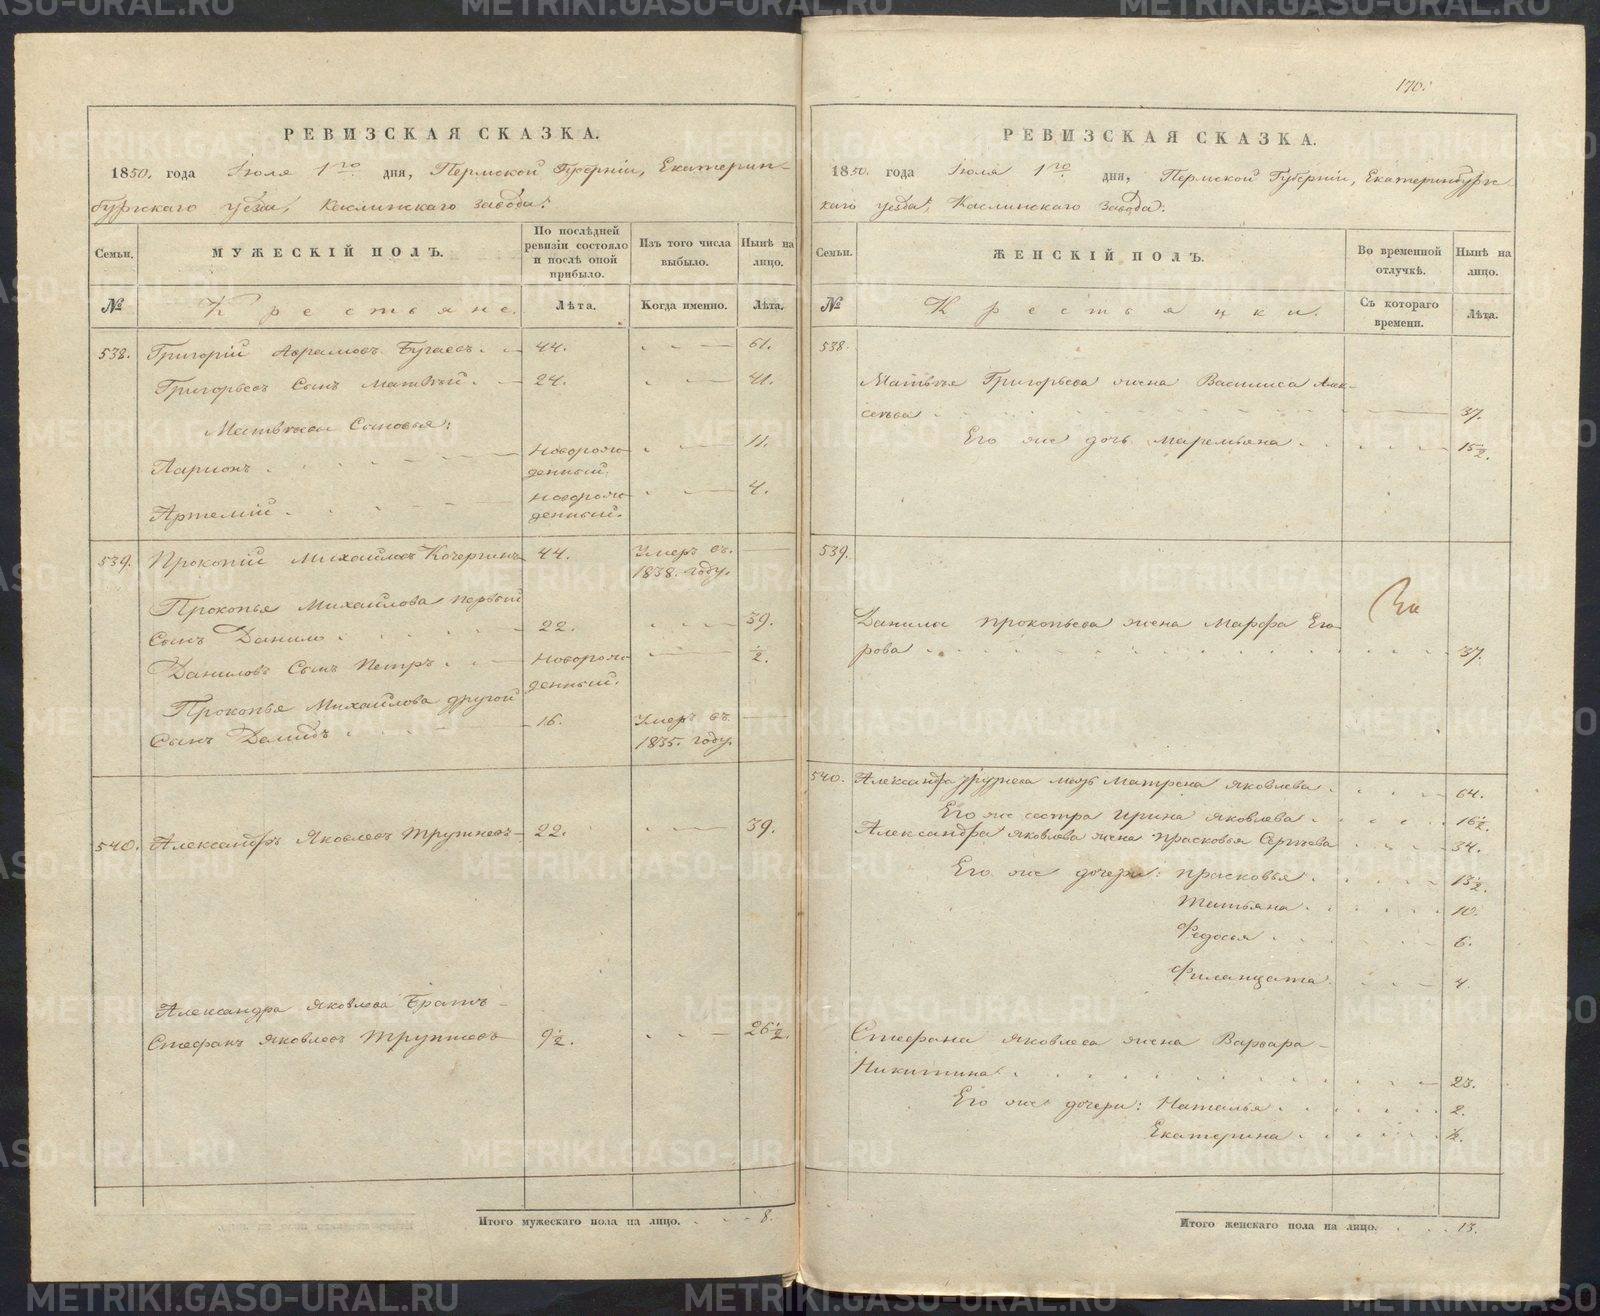 РЕВИЗСКАЯ СКАЗКА.
1850. года Іюля 1го дня, Пермской Губерніи, Екатерин-
бургскаго уезда, Каслинскаго завода:
Семьи.
МУЖЕСКІЙ ПОЛЪ.
По послѣдней ревизіи состояло и послѣ оной прибыло.
Изъ того числа выбыло.
Нынѣ на лицо.
№
Крестьяне.
Лѣта.
Когда именно.
Лѣта.
538. Григорій Аврамовъ Бугаевъ. 44. 61.
Григорьевъ Сынъ Матвѣй. 24. 41.
Матвѣевы Сыновья:
Ларионъ. Новорож- 11.
денный.
Артемій. Новорож- 4.
денный.
539. Прокопій Михайловъ Кочергинъ 44. Умеръ въ. —
1838. году.
Прокопья Михайлова первый
Сынъ Данило 22. 39.
Даниловъ Сынъ Петръ. Новорож- ½.
денный.
Прокопья Михайлова другой
Сынъ Демидъ 16. Умеръ въ —
1835. году.
540. Александръ Яковлевъ Трутневъ 22. 39.
Александра Яковлева Братъ
Стефанъ Яковлевъ Трутневъ 9½. 26½.
Итого мужескаго пола на лицо. 8.
170.
РЕВИЗСКАЯ СКАЗКА.
1850. года Іюля 1го дня, Пермской Губерніи, Екатеринбургс-
каго уезда, Каслинскаго завода:
Семьи.
ЖЕНСКІЙ ПОЛЪ.
Во временной отлучкѣ.
Нынѣ на лицо.
№
Крестьянки.
Съ котораго времени.
Лѣта.
538.
Матвѣя Григорьева жена Василиса Алек-
сеева 37.
Его же дочь Маремьяна 15½.
539.
Данилы Прокопьева жена Марфа Его-
рова 37.
540. Александра Трутнева мать Матрена Яковлева 64.
Его же сестра Ирина Яковлева 16½.
Александра Яковлева жена Прасковья Сергѣева 34.
Его же дочери: Прасковья 13½.
Татьяна 10.
Федосья 6.
Филанцата 4.
Стефана Яковлева жена Варвара
Никитина 23.
Его же дочери: Наталья 2.
Екатерина ½.
Итого женскаго пола на лицо. 13.
METRIKI.GASO-URAL.RU